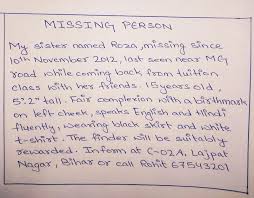 MISSING PERSON
My sister named Roza, missing since
10th November 2012, last seen near MG
road while coming back from tuition
class with her friends. 15 years old,
5'.2" tall. Fair complexion with a birthmark
on left cheek, speaks English and Hindi
fluently, wearing black skirt and white
t-shirt. The finder will be suitably
rewarded. Inform at C-02A, Lajpat
Nagar, Bihar or call Rohit 67543201